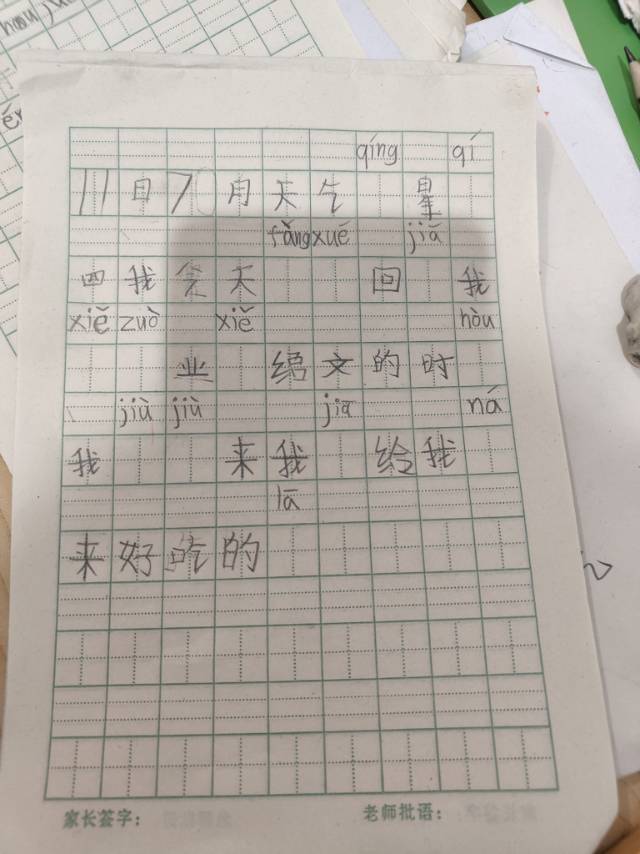 hou
qíng qí
11日70月天气 星
fǎng xué jiā
四我今天 回 我
xiě zuò xiě hòu
业 绍文的时
jiù jiù jiā ná
我 来我 给我
lā
来好吃的
家长签字： 老师批语：